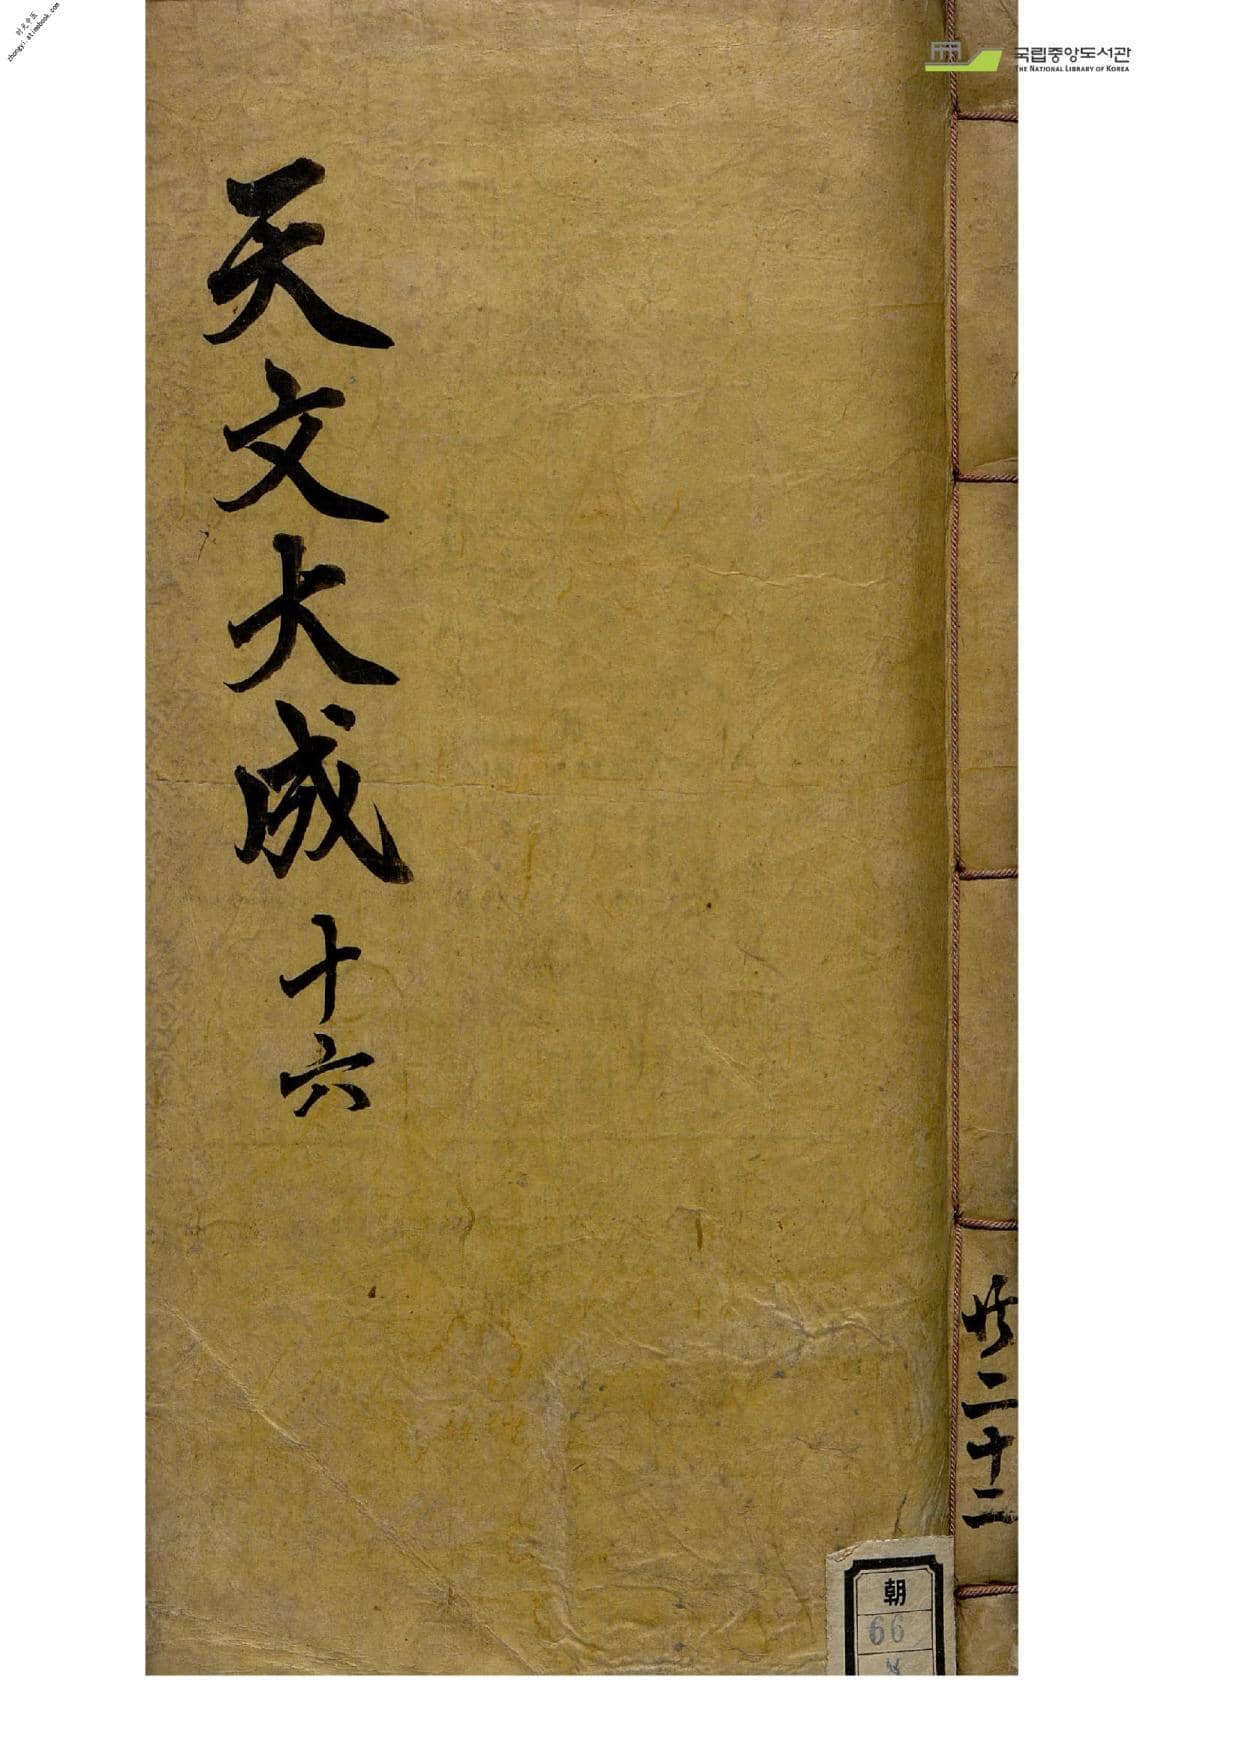 时光中医
zhongyi.atimebook.com
국립중앙도서관
THE NATIONAL LIBRARY OF KOREA
天文大成 十六
共二十二
朝
66